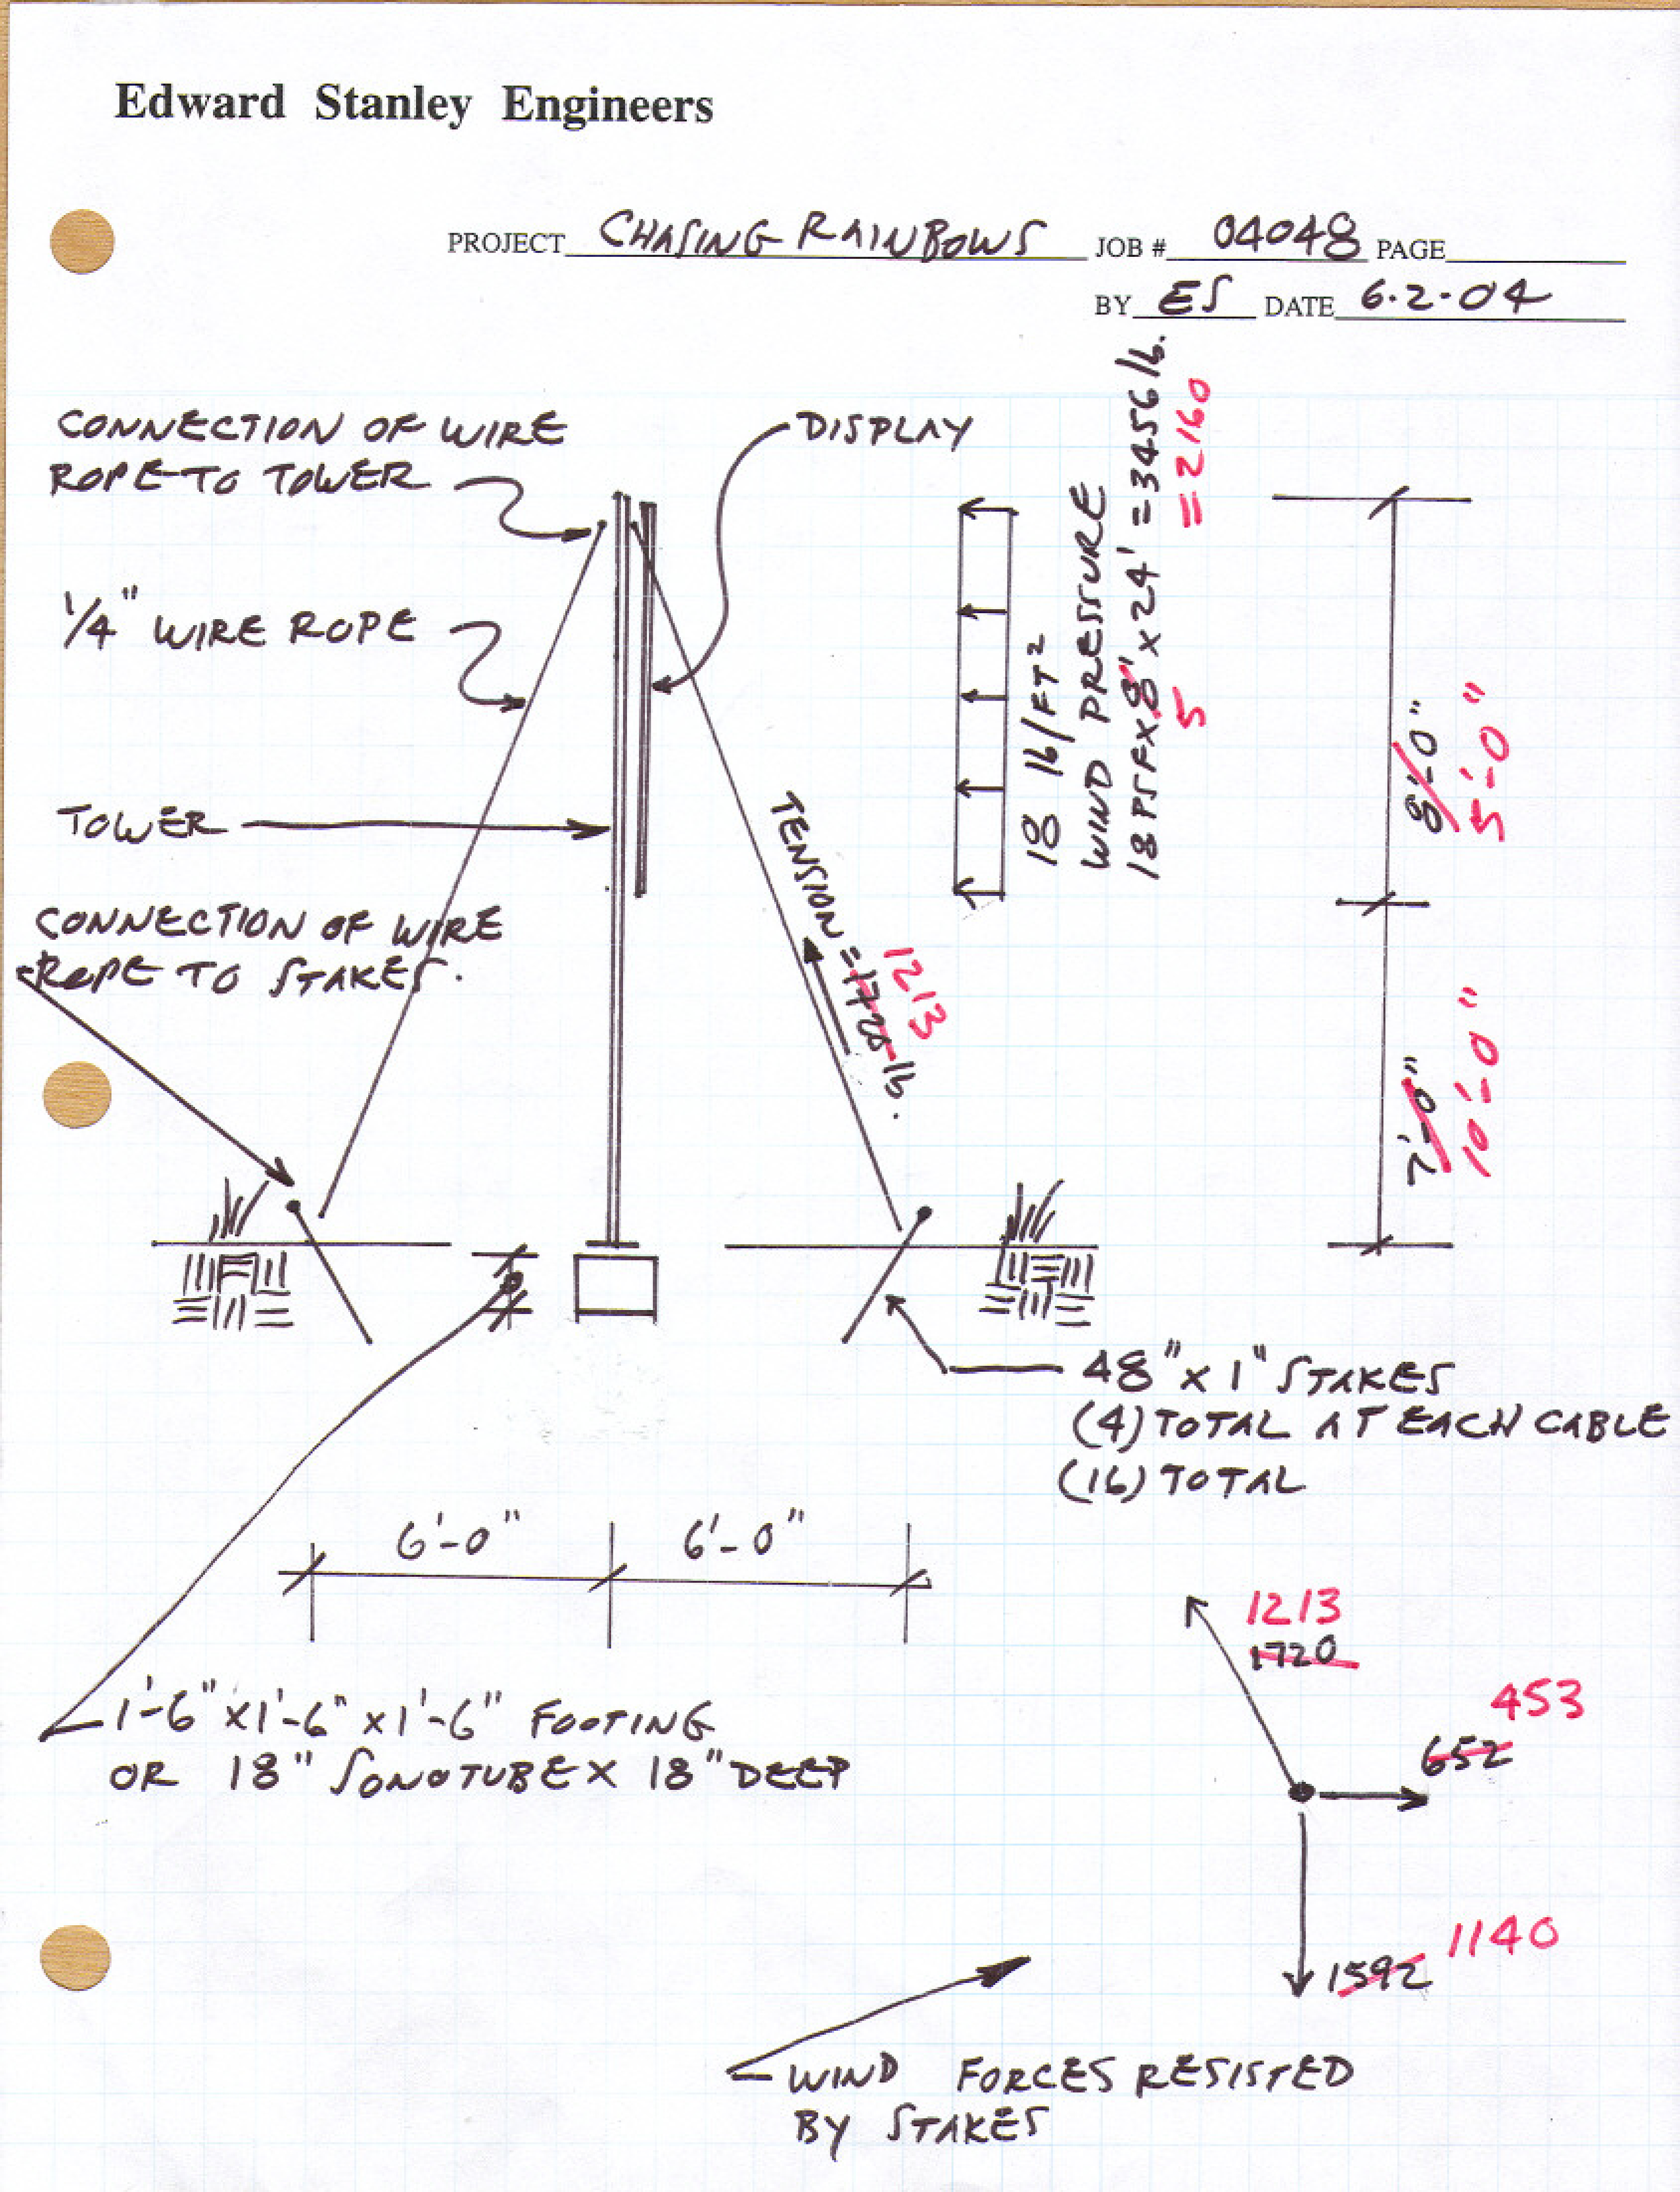 Edward Stanley Engineers
PROJECT CHASING RAINBOWS JOB # 04048 PAGE
BY ES DATE 6.2.04
CONNECTION OF WIRE
ROPE TO TOWER
DISPLAY
1/4" WIRE ROPE
TOWER
CONNECTION OF WIRE
ROPE TO STAKES.
TENSION = 1720 lb.
1213
18 lb/FT²
WIND PRESSURE
18 PSF x 8' x 24' = 3456 lb.
5 = 2160
8'-0"
5'-0"
7'-0"
10'-0"
48" x 1" STAKES
(4) TOTAL AT EACH CABLE
(16) TOTAL
6'-0" 6'-0"
1'-6" x 1'-6" x 1'-6" FOOTING
OR 18" SONOTUBE x 18" DEEP
1213
1720
453
652
1140
1592
WIND FORCES RESISTED
BY STAKES